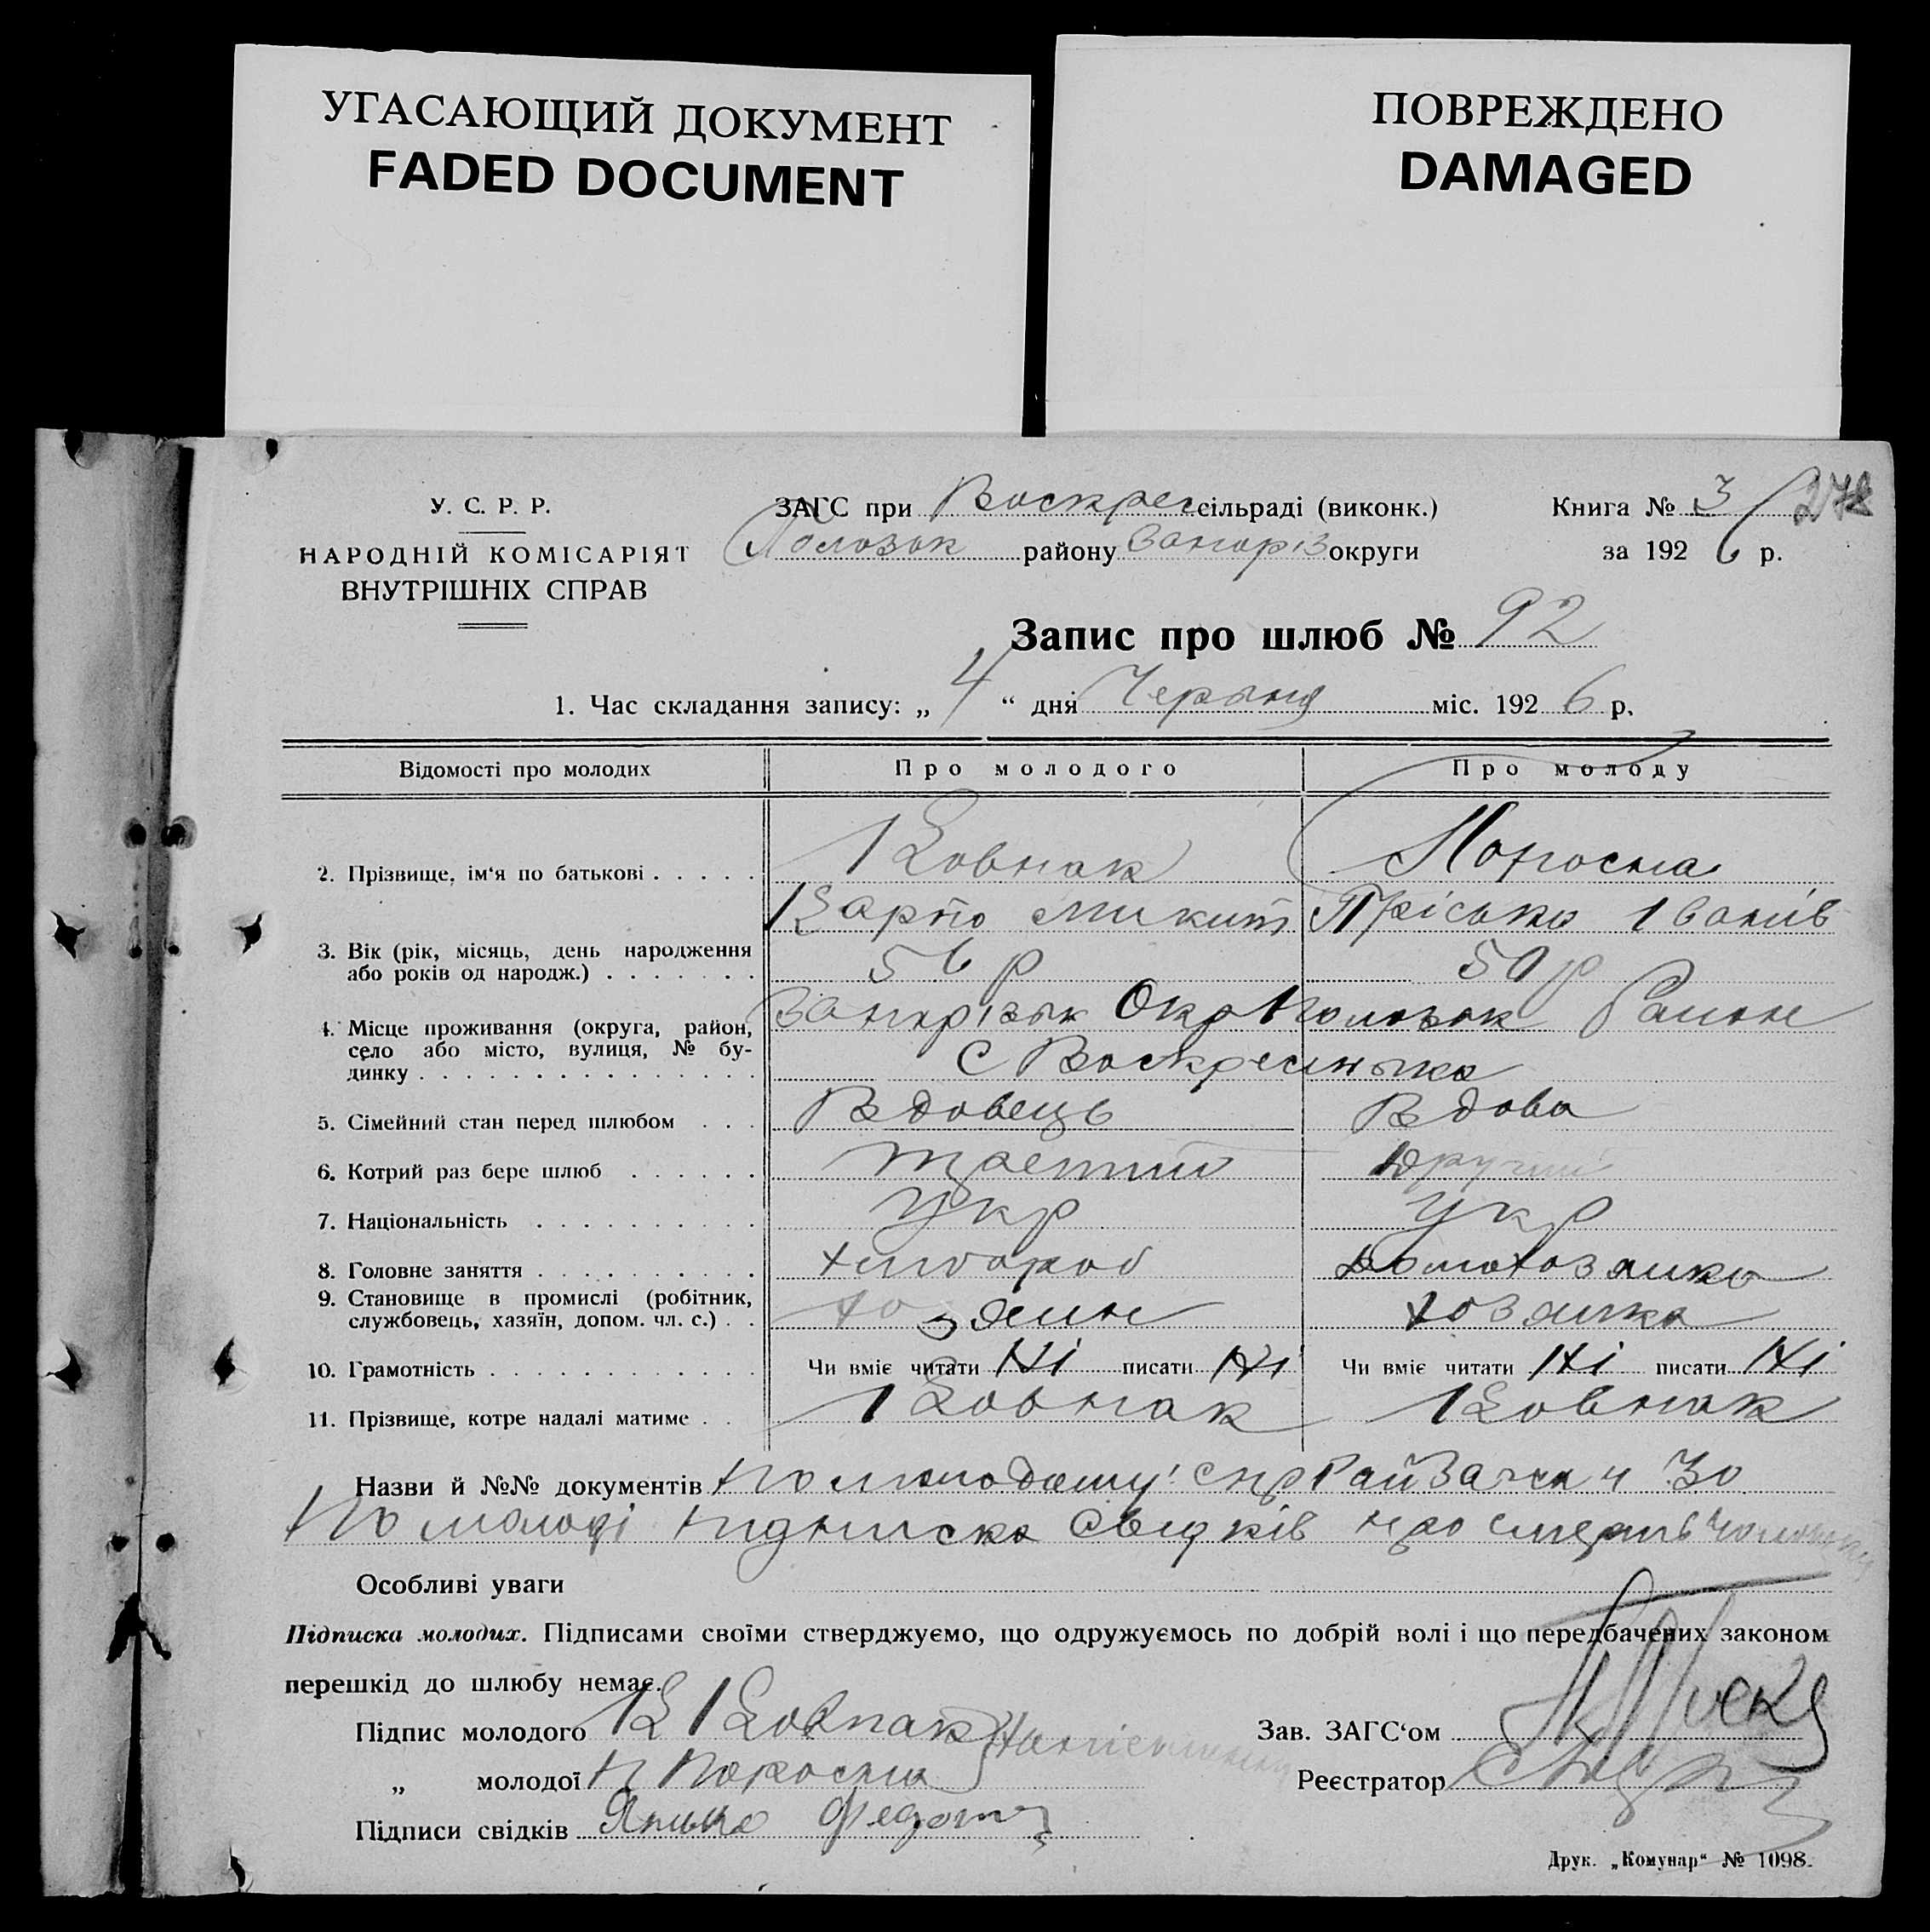 УГАСАЮЩИЙ ДОКУМЕНТ
FADED DOCUMENT
ПОВРЕЖДЕНО
DAMAGED
У. С. Р. Р.
НАРОДНІЙ КОМІСАРІЯТ
ВНУТРІШНІХ СПРАВ
ЗАГС при Воскрес сільраді (виконк.)
Полозьк району Запоріз округи
Книга № 3 278
за 192 6 р.
Запис про шлюб № 92
1. Час складання запису: „ 4 “ дня Червня міс. 192 6 р.
Відомості про молодих Про молодого Про молоду
2. Прізвище, ім'я по батькові Ковпак Поросна
Карпо Микит Пріська Іванів
3. Вік (рік, місяць, день народження
або років од народж.) 56 р 50 р
4. Місце проживання (округа, район,
село або місто, вулиця, № бу-
динку Запорізьк Окр Полозьк Район
С Воскресенька
5. Сімейний стан перед шлюбом Вдовець Вдова
6. Котрий раз бере шлюб третий другий
7. Національність Укр Укр
8. Головне заняття хлібороб домохозяйка
9. Становище в промислі (робітник,
службовець, хазяїн, допом. чл. с.) хозяин хозяйка
10. Грамотність Чи вміє читати Ні писати Ні Чи вміє читати Ні писати Ні
11. Прізвище, котре надалі матиме Ковпак Ковпак
Назви й №№ документів По молодому: 30
По молоді підписка свідків про смерть
Особливі уваги
Підписка молодих. Підписами своїми стверджуємо, що одружуємось по добрій волі і що передбачених законом
перешкід до шлюбу немає.
Підпис молодого К Ковпак
„ молодої П Поросна
Підписи свідків
Зав. ЗАГС'ом
Реєстратор
Друк. „Комунар“ № 1098.